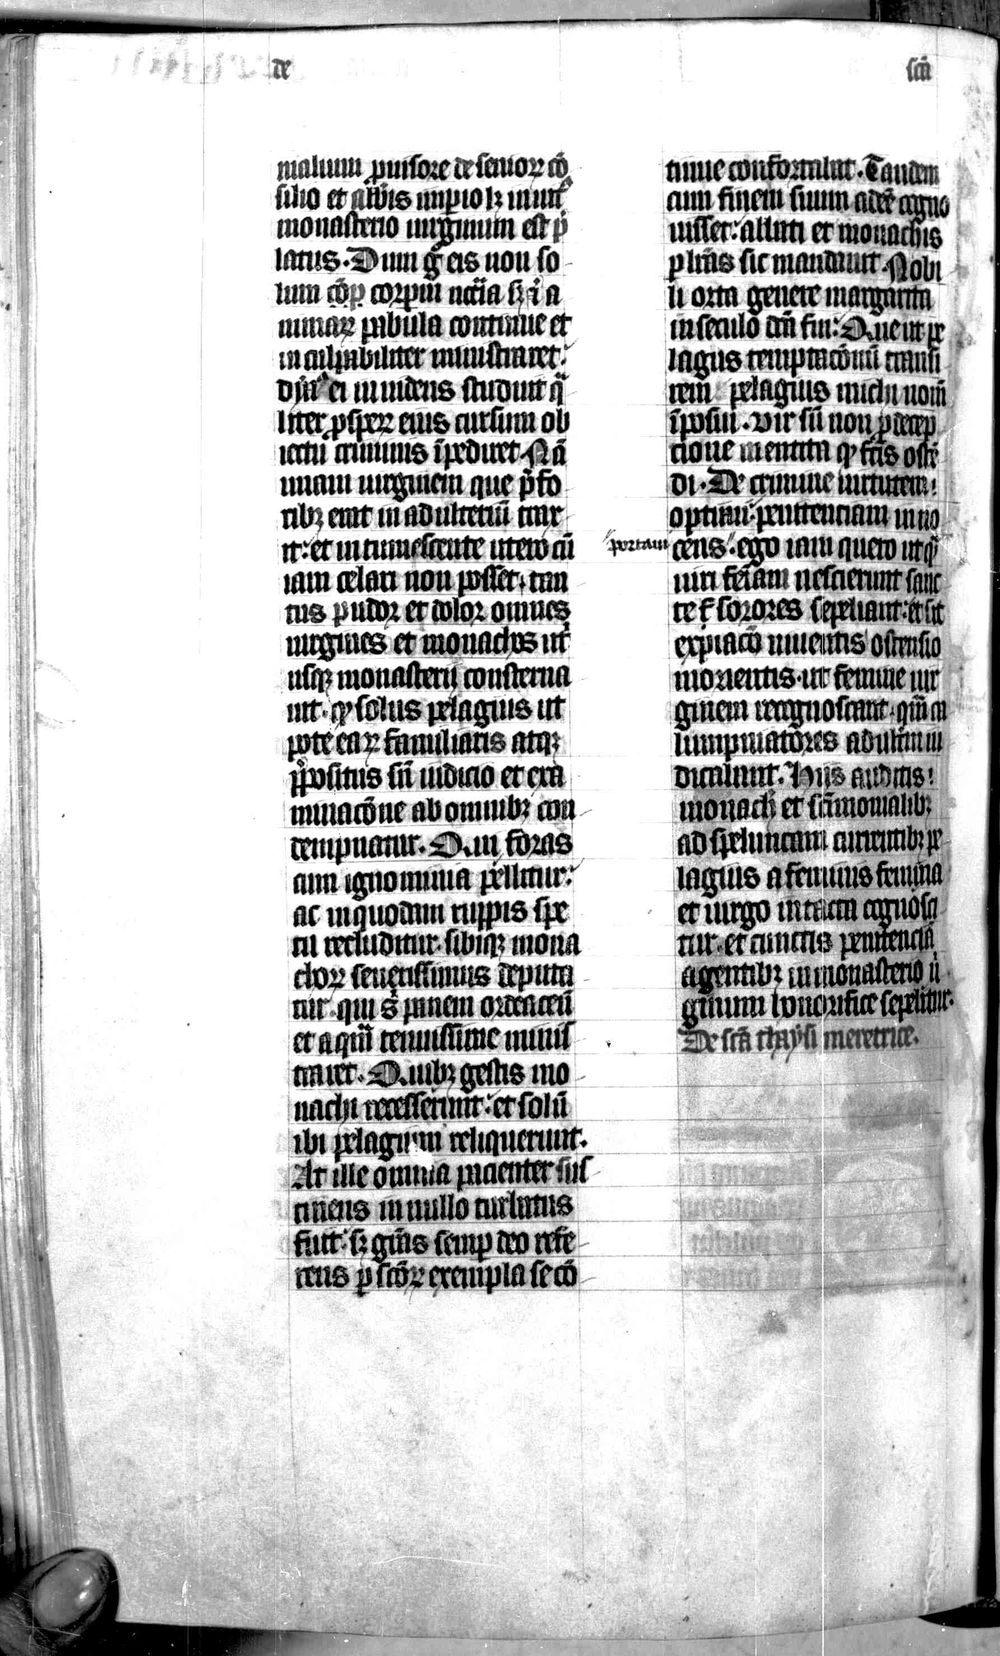 de
scā
nialium ꝓuisore de senioꝝ cō
silio et abbīs imperio lꝫ inuitꝰ
monasterio uirginum est p̄
latus. Dum g̊ eis non so
lum cōp̄ corporum nc̄ia sꝫ ⁊ a
nimaꝝ pabula continue et
inculpabiliter ministraret:
dyāꝰ ei inuidens studuit q̄
liter ꝓsperꝝ eius cursum ob
iectu criminis īpediret. Nā
unam uirginem que p̄ fo
ribꝫ erat in adulteriū trax
it: et intumescente utero cū
iam celari non posset, tan
tus pudor et dolor omnes
uirgines et monachos utͥ
usqꝫ monasterij consterna
uit. ꝙ solus pelagius ut
pote eaꝝ familiaris atqꝫ
p̄positus sn̄ iudicio et exa
minacōne ab omnibꝫ con
dempnatur. Qui foras
cum ignominia pellitur:
ac in quodam ruppis spe
cu recluditur. sibiqꝫ mona
choꝝ seuerissimus deputa
tur. qui ꝯ panem ordeaceū
et aquā tenuissime minis
traret. Quibꝫ gestis mo
nachi recesserunt: et solū
ibi pelagium reliquerunt.
At ille omnia pacienter sus
tinens in nullo turbatus
fuit: sꝫ grās semꝑ deo refe
rens ꝑ scōꝝ exempla se cō
tinue confortabat. Tandem
cum finem suum adeē cogno
uisset: abbati et monachis
ꝑ lrās sic mandauit. Nobi
li orta genere margarita
in seculo dc̄ā fui: Que ut pe
lagus temptacōnū transi
rem pelagius michi nom̄
īposui. Vir sū non ꝓ decep
cione mentita ꝙ fc̄īs ostē
di. De crimine uirtutem:
optinui. penitenciam inno
portaui
cens. ego iam quero ut qͣ
uiri feīam nescierunt sanc
te sorores sepeliant: et sit
expiacō uiuentis ostensio
morientis. ut femine uir
ginem recognoscant. quā ca
lumpniatores adulterā iu
dicabunt. Hijs auditis:
monachi et sc̄īmonialibꝫ
ad speluncam currentibꝫ pe
lagius a feminis femina
et uirgo intacta cognosci
tur. et cunctis penitenciā
agentibꝫ in monasterio ui
ginum honorifice sepelitur.
De scā thaysi meretrice.